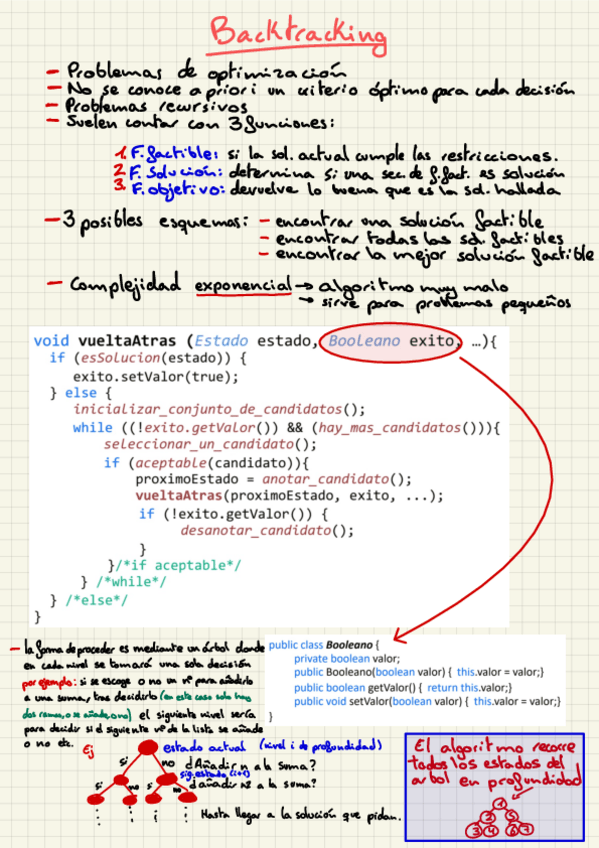 Backtracking
- Problemas de optimización
- No se conoce a priori un criterio óptimo para cada decisión
- Problemas recursivos
- Suelen contar con 3 funciones:
1. F. factible: si la sol. actual cumple las restricciones.
2. F. Solución: determina si una sec. de f. fact. es solución
3. F. objetivo: devuelve lo buena que es la sol. hallada
- 3 posibles esquemas: - encontrar una solución factible
- encontrar todas las sol. factibles
- encontrar la mejor solución factible
- Complejidad exponencial → algoritmo muy malo
→ sirve para problemas pequeños
void vueltaAtras (Estado estado, Booleano exito, …){
if (esSolucion(estado)) {
exito.setValor(true);
} else {
inicializar_conjunto_de_candidatos();
while ((!exito.getValor()) && (hay_mas_candidatos())){
seleccionar_un_candidato();
if (aceptable(candidato)){
proximoEstado = anotar_candidato();
vueltaAtras(proximoEstado, exito, ...);
if (!exito.getValor()) {
desanotar_candidato();
}
}/*if aceptable*/
} /*while*/
} /*else*/
}
- la forma de proceder es mediante un árbol donde
en cada nivel se tomará una sola decisión
por ejemplo: si se escoge o no un nº para añadirlo
a una suma, tras decidirlo (en este caso solo hay
dos ramas, o se añade, o no) el siguiente nivel sería
para decidir si el siguiente nº de la lista se añade
o no etc.
public class Booleano {
private boolean valor;
public Booleano(boolean valor) { this.valor = valor;}
public boolean getValor() { return this.valor;}
public void setValor(boolean valor) { this.valor = valor;}
}
Ej
estado actual (nivel i de profundidad)
si no ¿Añadir n a la suma?
sig. estado (i+1)
si no si no ¿añadir n2 a la suma?
Hasta llegar a la solución que pidan.
El algoritmo recorre
todos los estados del
arbol en profundidad
1
2 5
3 4 6 7